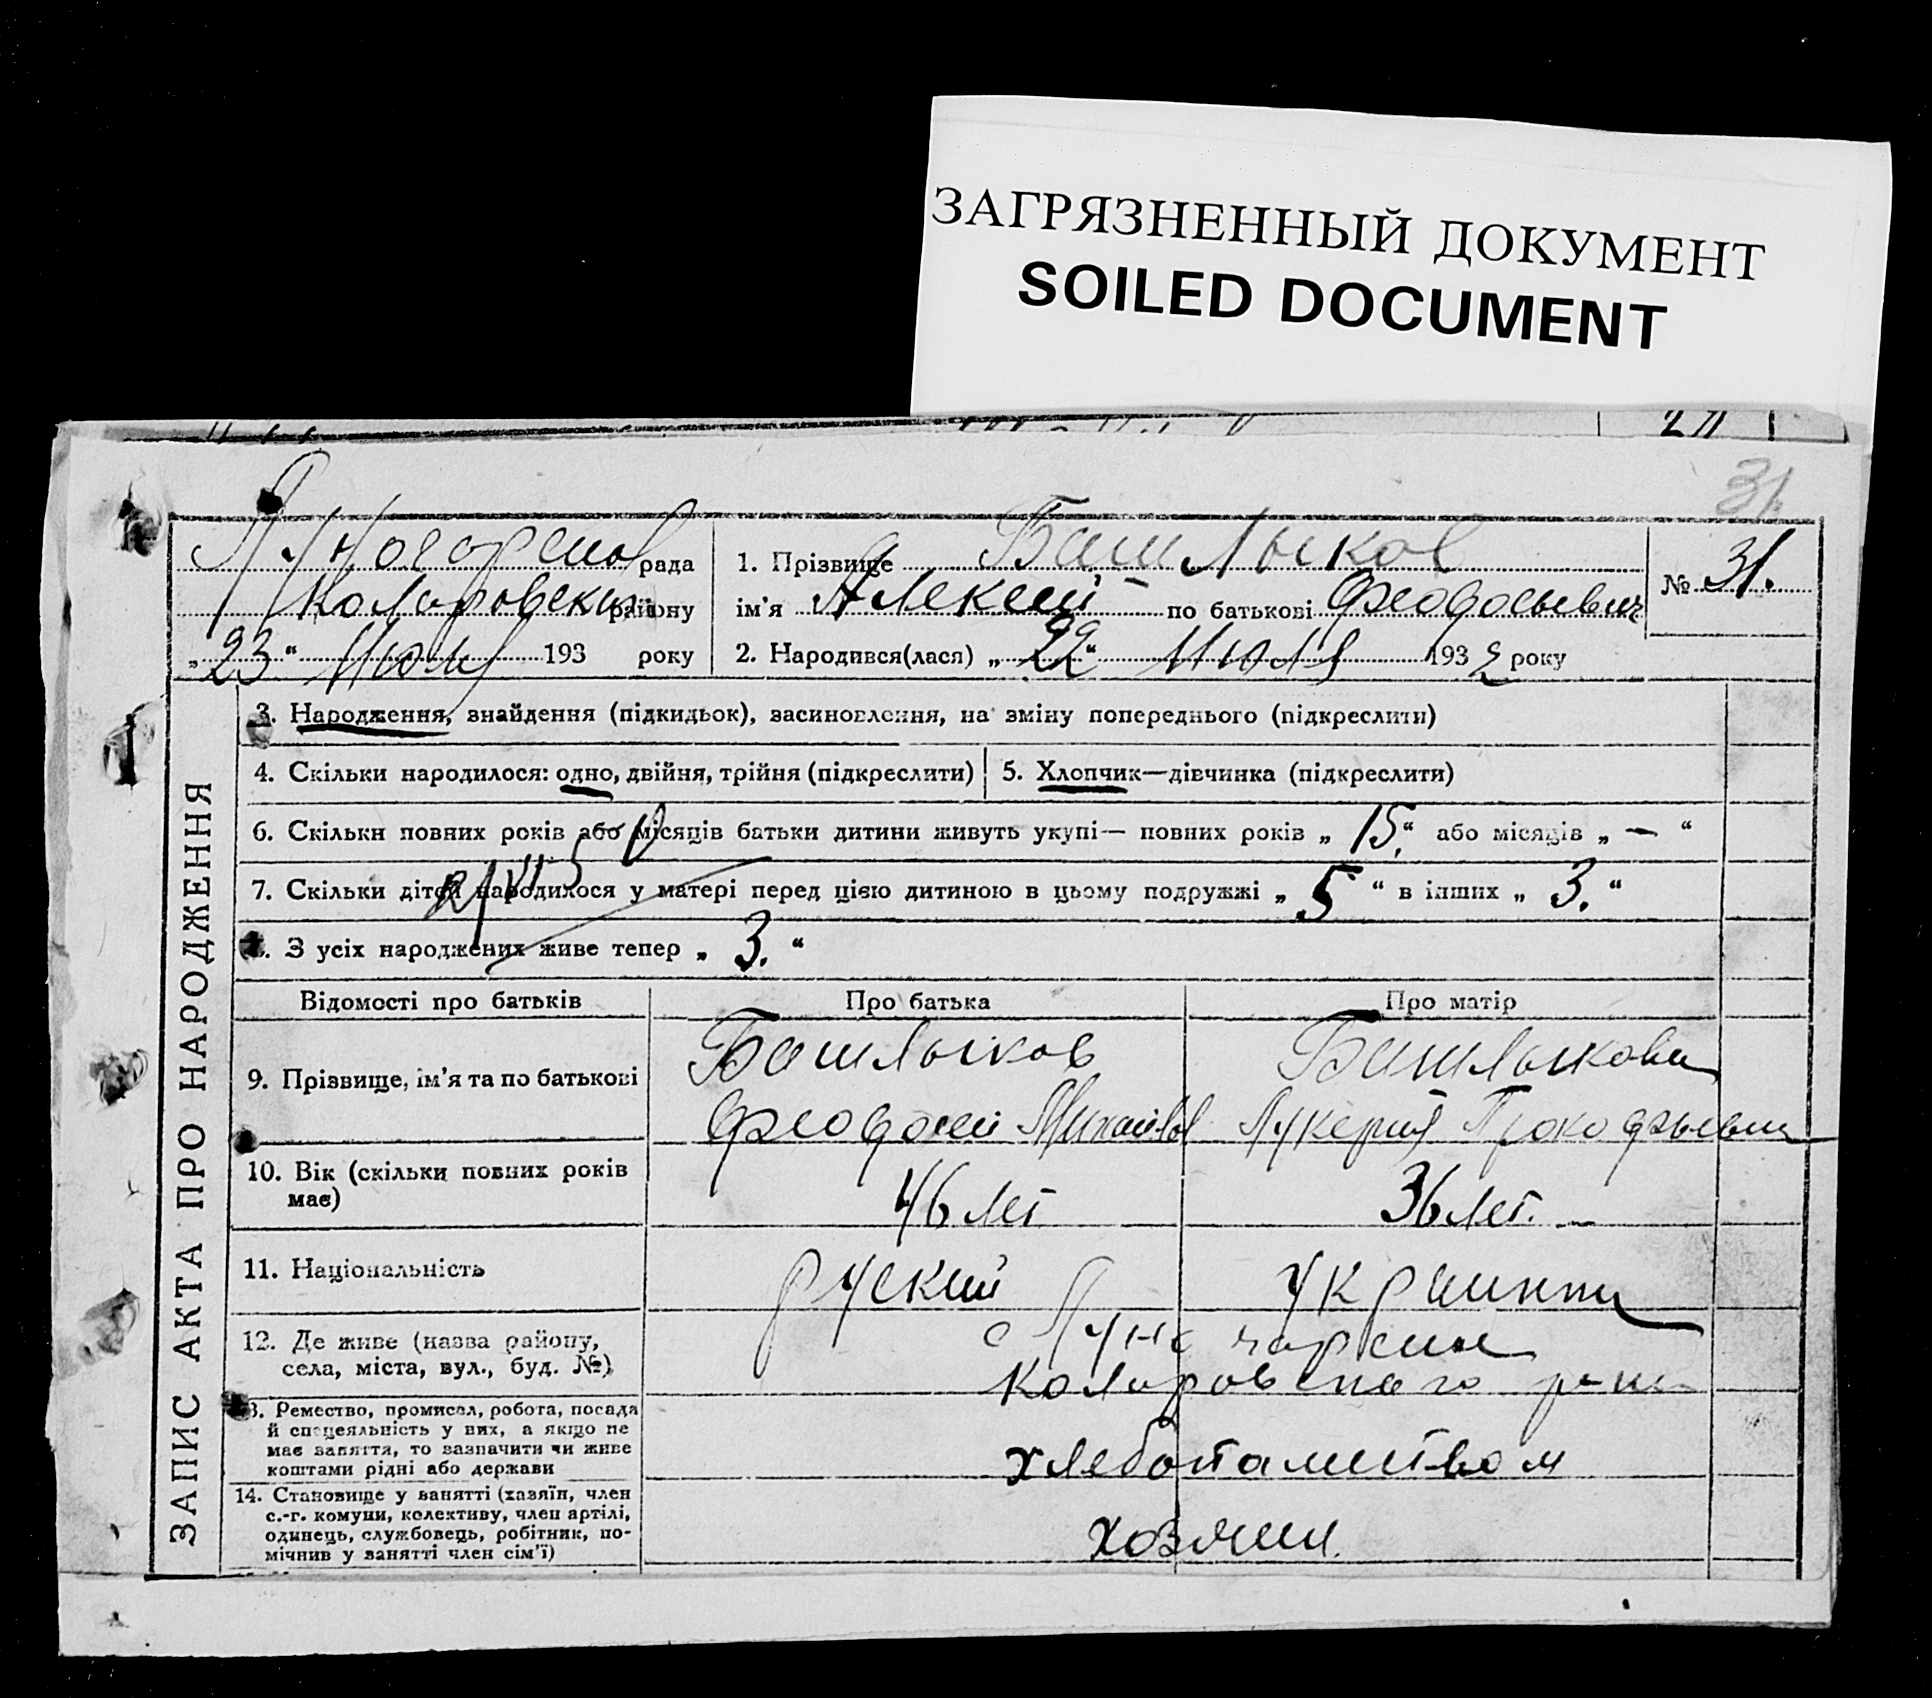 ЗАГРЯЗНЕННЫЙ ДОКУМЕНТ
SOILED DOCUMENT
31.
рада
Коларовский району
„23“ Июля 193 року
1. Прізвище Башлыков
ім'я Алексей по батькові Феодосьевич
2. Народився(лася) „22“ Июля 1932 року
№ 31.
ЗАПИС АКТА ПРО НАРОДЖЕННЯ
3. Народження, знайдення (підкидьок), засиновлення, на зміну попереднього (підкреслити)
4. Скільки народилося: одно, двійня, трійня (підкреслити)
5. Хлопчик—дівчинка (підкреслити)
6. Скільки повних років або місяців батьки дитини живуть укупі— повних років „ 15. “ або місяців „ — “
7. Скільки дітей народилося у матері перед цією дитиною в цьому подружжі „ 5 “ в інших „ 3. “
8. З усіх народжених живе тепер „ 3. “
Відомості про батьків
Про батька
Про матір
9. Прізвище, ім'я та по батькові
Башлыков
Феодосий Михайлов
Башлыкова
Лукерия Прокофьевна
10. Вік (скільки повних років
має)
46 лет
36 лет.
11. Національність
руский
12. Де живе (назва району,
села, міста, вул., буд. №)
с
Коларовского р-на
13. Ремество, промисел, робота, посада
й спецеяльність у них, а якщо не
має заняття, то зазначити чи живе
коштами рідні або держави
14. Становище у занятті (хазяїн, член
с.-г. комуни, колективу, член артілі,
одинець, службовець, робітник, по-
мічнив у занятті член сім'ї)
хозяин.